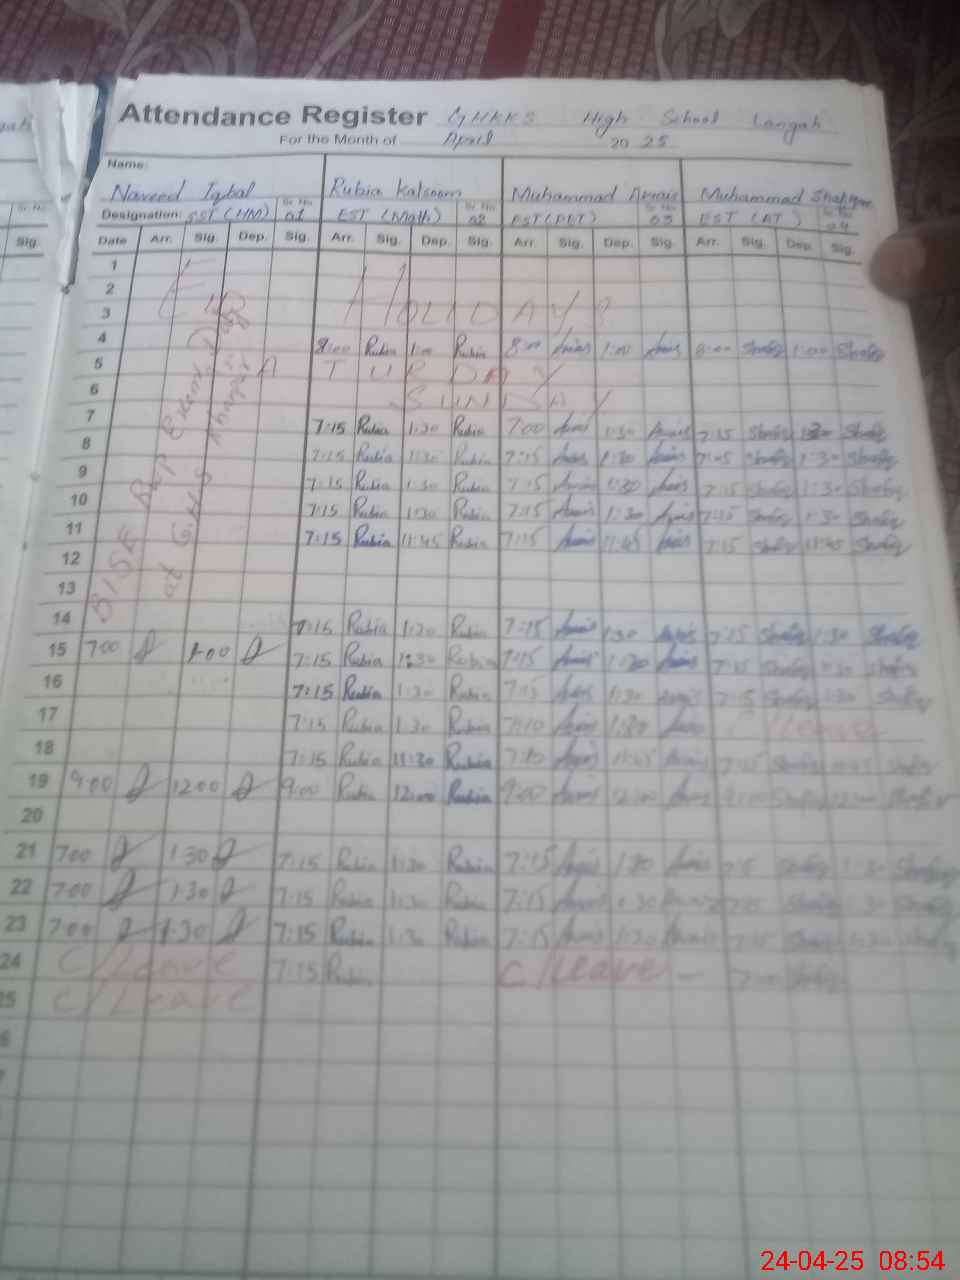 Attendance Register GHKKS High School Langah
For the Month of April 20 25
Name:
Naveed Iqbal Rubia Kalsoom Muhammad Awais Muhammad Shafique
Designation: SST (HM) Sr. No. 01 EST (Math) Sr. No. 02 EST (PET) Sr. No. 03 EST (AT) Sr. No. 04
Sig. Date Arr. Sig. Dep. Sig. Arr. Sig. Dep. Sig. Arr. Sig. Dep. Sig. Arr. Sig. Dep. Sig.
1
2
3 HOLIDAYS
4 8:00 Rubia 1:00 Rubia 8:00 Awais 1:00 Awais 8:00 Shafiq 1:00 Shafiq
5 SATURDAY
6 SUNDAY
BISE RWP Exam, Duty
at G.H.S
7 7:15 Rubia 1:30 Rubia 7:00 Awais 1:30 Awais 7:15 Shafiq 1:30 Shafiq
8 7:15 Rubia 1:30 Rubia 7:15 Awais 1:30 Awais 7:15 Shafiq 1:30 Shafiq
9 7:15 Rubia 1:30 Rubia 7:15 Awais 1:30 Awais 7:15 Shafiq 1:30 Shafiq
10 7:15 Rubia 1:30 Rubia 7:15 Awais 1:30 Awais 7:15 Shafiq 1:30 Shafiq
11 7:15 Rubia 11:45 Rubia 7:15 Awais 11:45 Awais 7:15 Shafiq 11:45 Shafiq
12
13
14 7:15 Rubia 1:30 Rubia 7:15 Awais 1:30 Awais 7:15 Shafiq 1:30 Shafiq
15 7:00 1:00 7:15 Rubia 1:30 Rubia 7:15 Awais 1:30 Awais 7:15 Shafiq 1:30 Shafiq
16 7:15 Rubia 1:30 Rubia 7:15 Awais 1:30 Awais 7:15 Shafiq 1:30 Shafiq
17 7:15 Rubia 1:30 Rubia 7:10 Awais 1:30 Awais C/leave
18 7:15 Rubia 11:30 Rubia 7:10 Awais 11:45 Awais 7:15 Shafiq 11:45 Shafiq
19 9:00 12:00 9:00 Rubia 12:00 Rubia 9:00 Awais 12:00 Awais 9:00 Shafiq 12:00 Shafiq
20
21 7:00 1:30 7:15 Rubia 1:30 Rubia 7:15 Awais 1:30 Awais 7:15 Shafiq 1:30 Shafiq
22 7:00 1:30 7:15 Rubia 1:30 Rubia 7:15 Awais 1:30 Awais 7:15 Shafiq 1:30 Shafiq
23 7:00 1:30 7:15 Rubia 1:30 Rubia 7:15 Awais 1:30 Awais 7:15 Shafiq 1:30 Shafiq
24 C/Leave 7:15 Rubia C/leave Shafiq
25 C/Leave
24-04-25 08:54